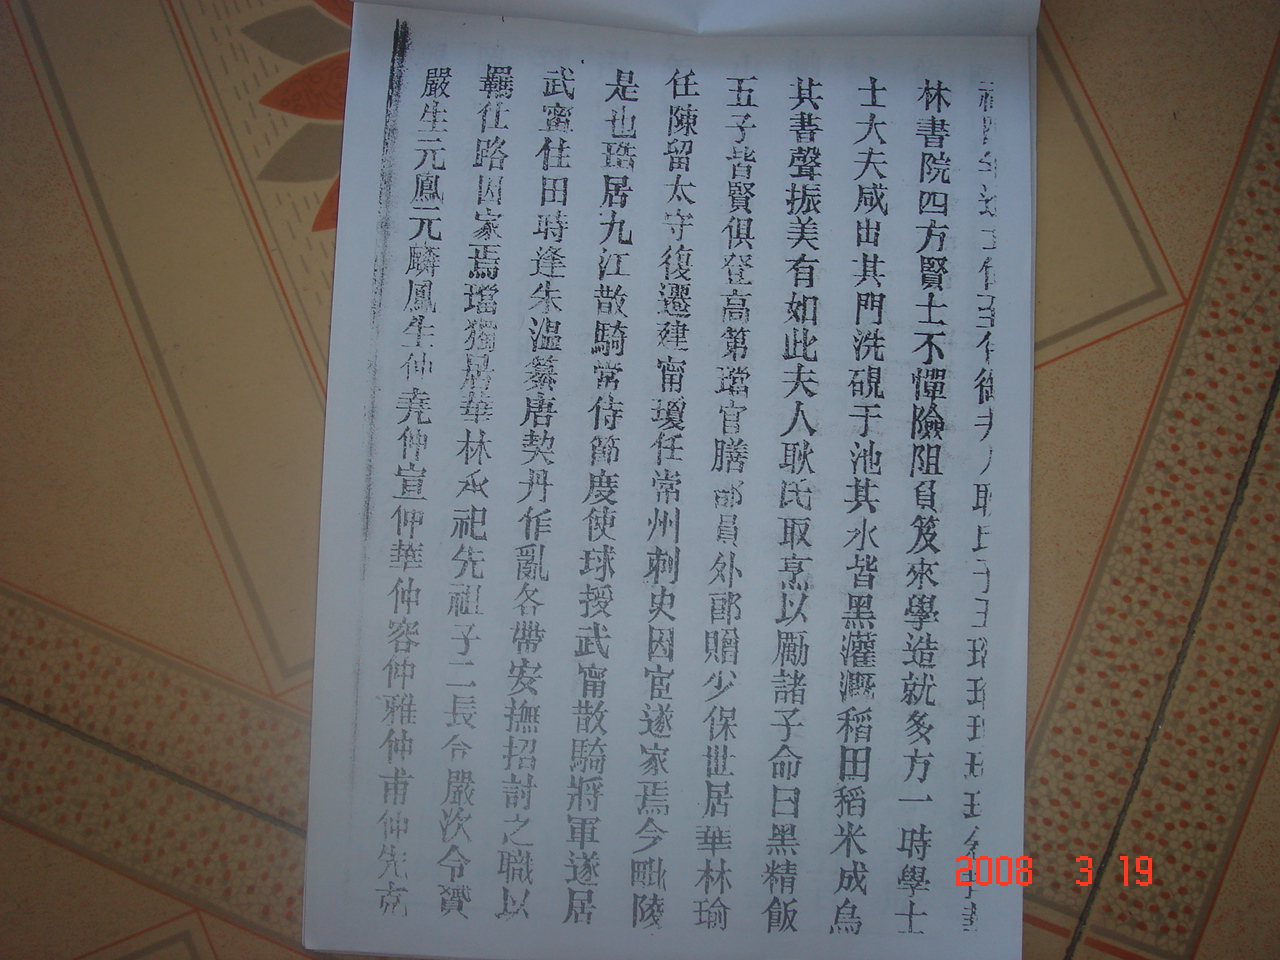 林書院四方賢士不憚險阻負笈來學造就多方一時學士
士大夫咸出其門洗硯于池其水皆黑灌溉稻田稻米成烏
其書聲振美有如此夫人耿氏取烹以勵諸子命曰黑精飯
五子皆賢俱登高第璫官膳部員外郎贈少保世居華林瑜
任陳留太守復遷建甯瓊任常州刺史因宦遂家焉今毗陵
是也琘居九江散騎常侍節度使球授武甯散騎將軍遂居
武寧住田時逢朱溫篡唐契丹作亂各帶安撫招討之職以
羈仕路因家焉璫獨居華林永祀先祖子二長令嚴次令贇
嚴生元鳳元麟鳳生仲堯仲宣仲華仲容仲雅仲甫仲先克
2008 3 19